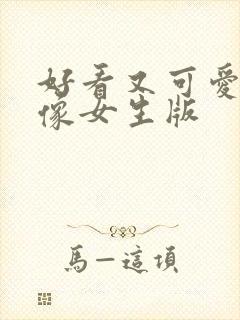 好看又可愛
像女生版
馬一這項